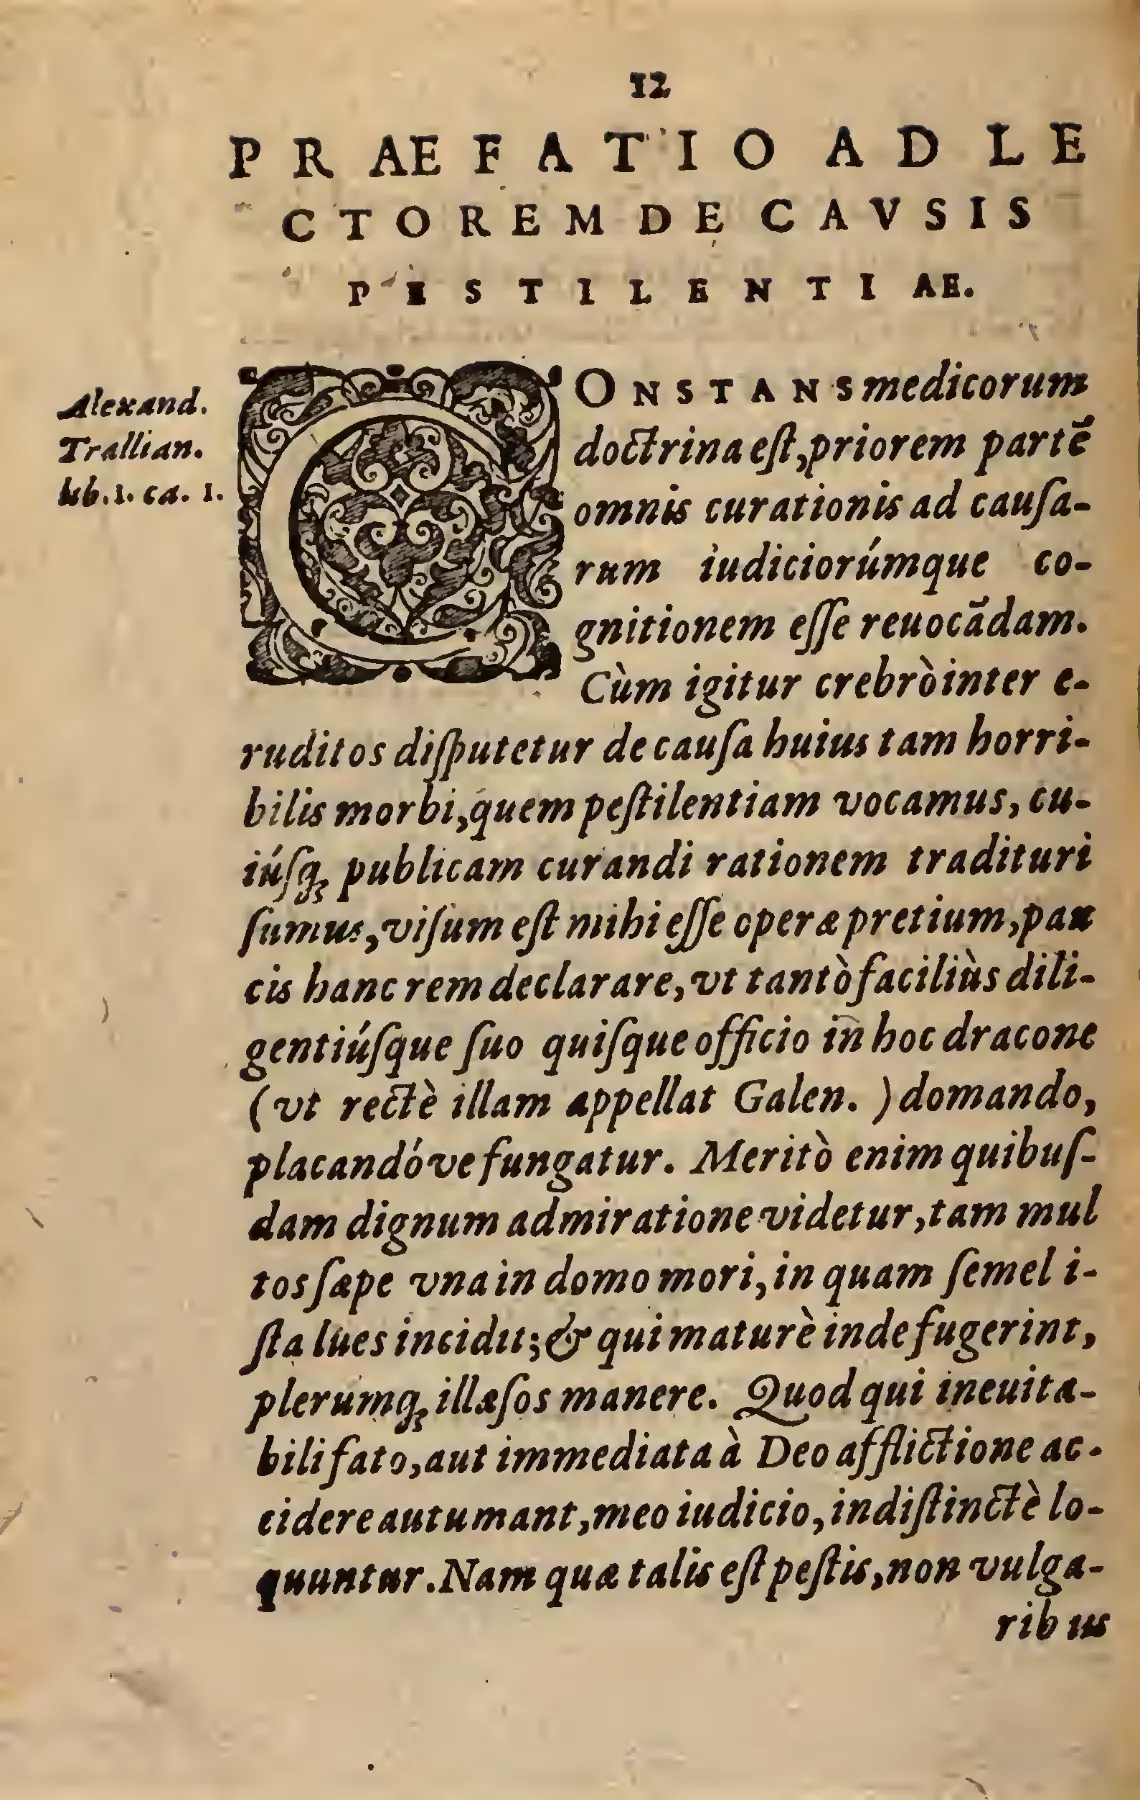 12
PRAEFATIO AD LE
CTOREM DE CAVSIS
PESTILENTIAE.
Alexand.
Trallian.
lib.1. ca. 1.
CONSTANS medicorum
doctrina eſt, priorem partẽ
omnis curationis ad cauſa-
rum iudiciorúmque co-
gnitionem eſſe reuocãdam.
Cùm igitur crebrò inter e-
ruditos diſputetur de cauſa huius tam horri-
bilis morbi, quem peſtilentiam vocamus, cu-
iúſq; publicam curandi rationem tradituri
ſumus, viſum eſt mihi eſſe operæ pretium, pau
cis hanc rem declarare, vt tantò faciliùs dili-
gentiúſque ſuo quiſque officio in hoc dracone
(vt rectè illam appellat Galen. ) domando,
placandóve fungatur. Meritò enim quibuſ-
dam dignum admiratione videtur, tam mul
tos ſæpe vna in domo mori, in quam ſemel i-
ſta lues incidit; & qui maturè inde fugerint,
plerumq; illæſos manere. Quod qui ineuita-
bili fato, aut immediata à Deo afflictione ac-
cidere autumant, meo iudicio, indiſtinctè lo-
quuntur. Nam quæ talis eſt peſtis, non vulga-
ribus